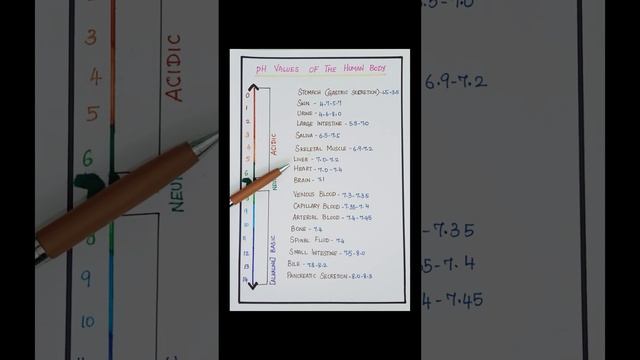 pH VALUES OF THE HUMAN BODY
STOMACH (GASTRIC SECRETION)-1.5-3.5
SKIN - 4.7-5.7
URINE - 4.6-8.0
LARGE INTESTINE - 5.5-7.0
SALIVA - 6.5-7.5
SKELETAL MUSCLE - 6.9-7.2
LIVER - 7.0-7.2
HEART - 7.0-7.4
BRAIN - 7.1
VENOUS BLOOD - 7.3-7.35
CAPILLARY BLOOD - 7.35-7.4
ARTERIAL BLOOD - 7.4-7.45
BONE - 7.4
SPINAL FLUID - 7.4
SMALL INTESTINE - 7.5-8.0
BILE - 7.8-8.2
PANCREATIC SECRETION - 8.0-8.3
0
1
2
3
4
5
6
8
9
10
11
12
13
14
ACIDIC
[ALKALINE] BASIC
3
4
5
6
8
9
10
ACIDIC
5-7.0
6.9-7.2
-7.35
5-7.4
4-7.45